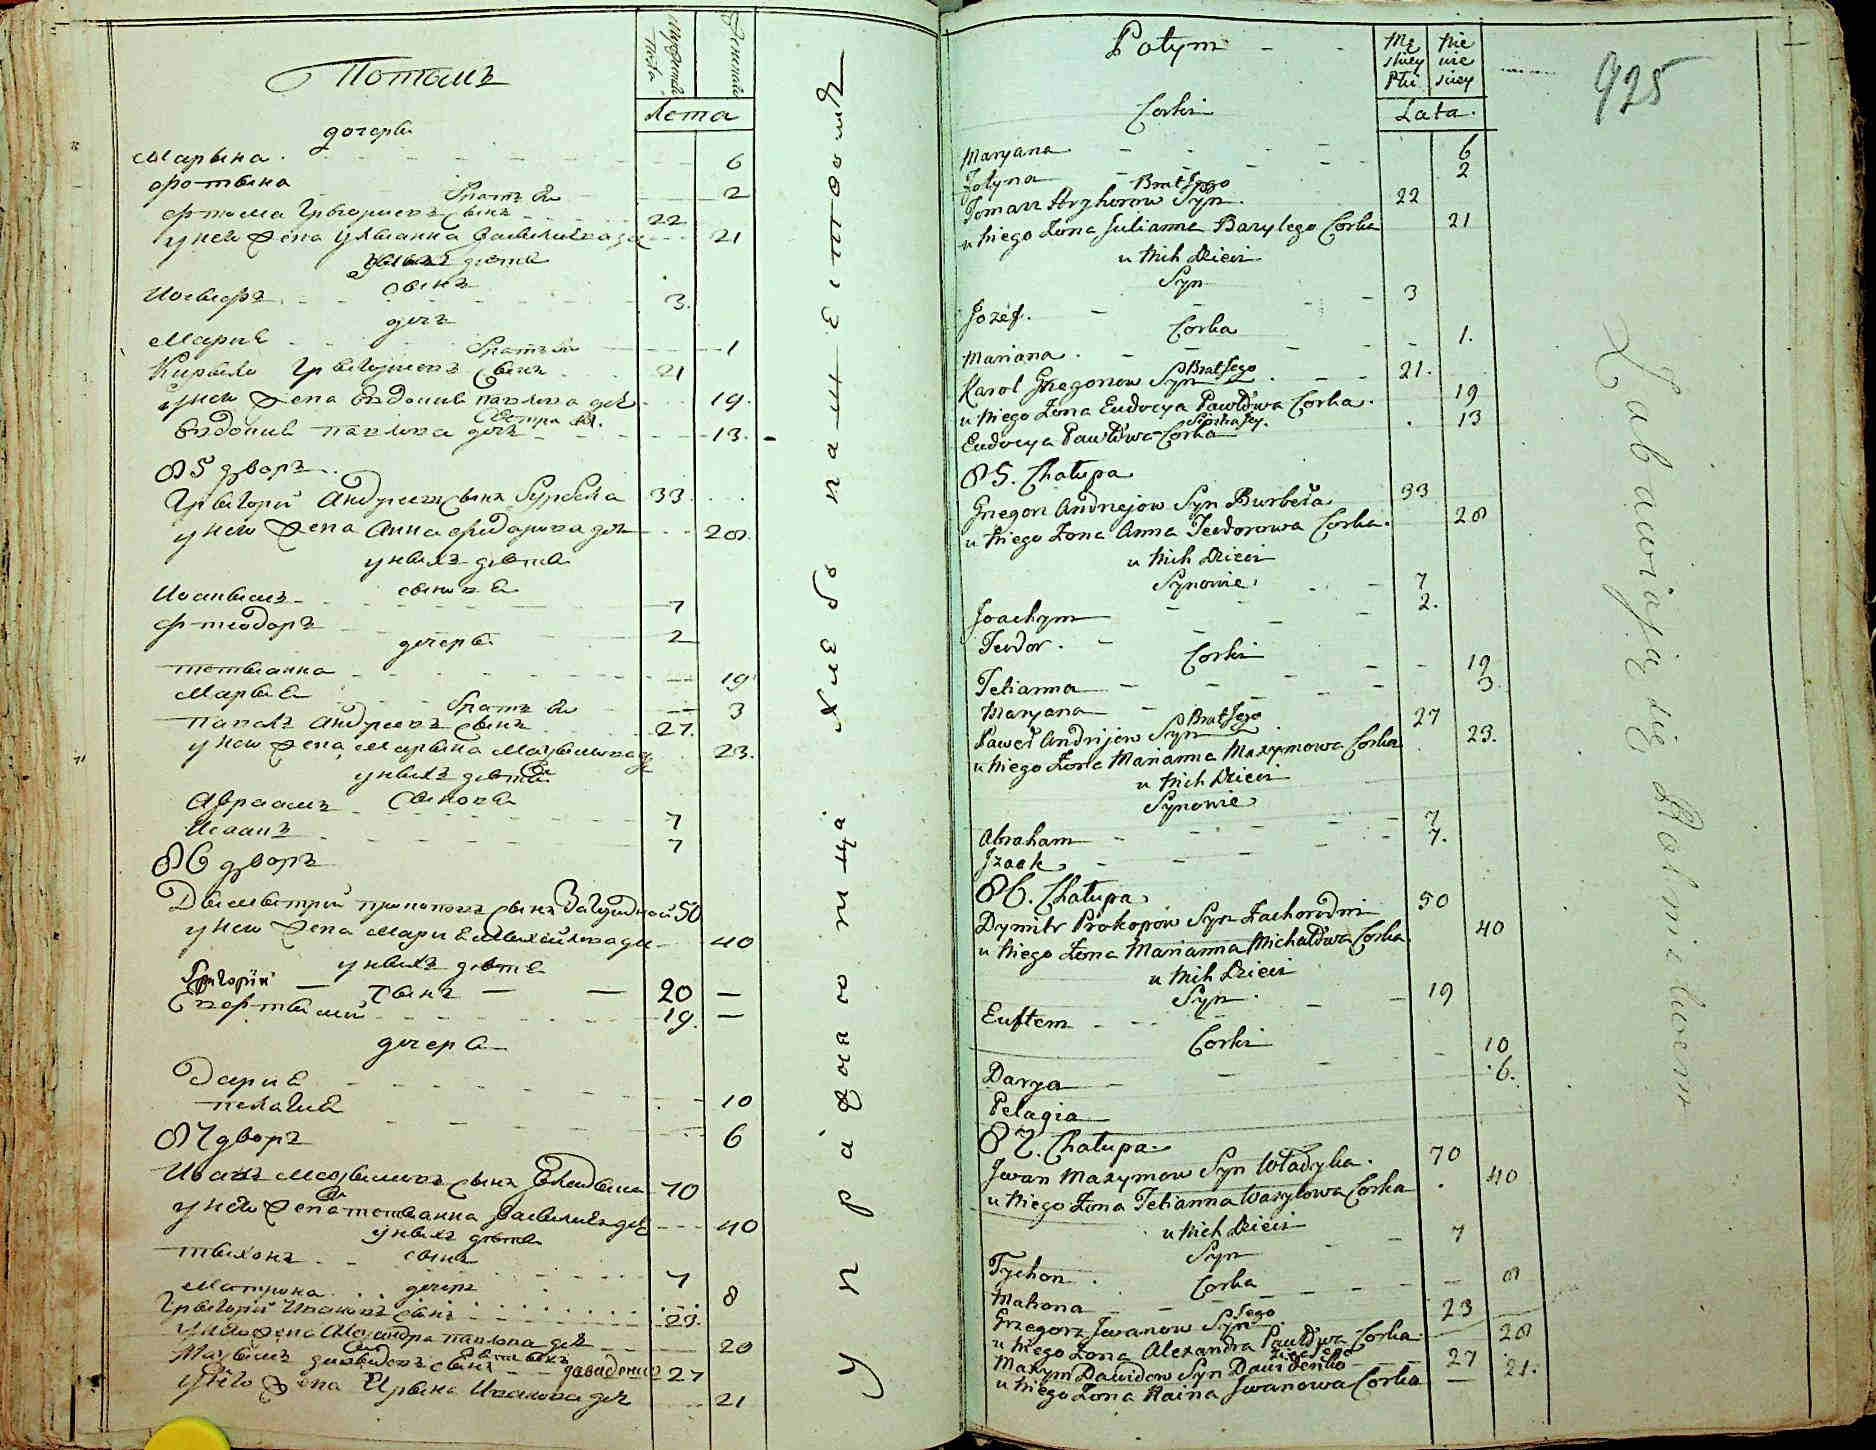 Потомъ
Мужеска пола
Женска
Лета
дочери
Марына 6
Фотына 2
братъ Ев
Фтома Грыгориевъ сынъ 22
у него жена Ульянна Васылиева до 21
у ныхъ дети
сынъ
Иосыфъ 3.
дочь
Мария 1
братъ Ев
Кирыло Грыгориевъ сынъ 21
у него жена Евдокия павлова доч 19.
Сестра Ея.
Евдокия павлова дочь 13.
85 дворъ
Грыгорий Андреевъ сынъ Бурбела 33
у него жена Анна Федорова доч 28.
у ныхъ дети
сынове
Иоакымъ 7
Фтеодоръ 2
дочеры
тетыанна 19
Марыя 3
братъ Ев
павелъ Андреевъ сынъ 27.
у него жена Марына Максымова до 23.
у ныхъ дети
Сынове
Авраамъ 7
Исаакъ 7
86 дворъ
Дымытрий прокоповъ сынъ Загородной 50
у него жена Мария Михайлова до 40
у ныхъ дети
Григорий — сынъ — — 20 —
Евфтымий 19. —
дочери
Дария 10
пелагия 6
87 дворъ
Иванъ Максымовъ сынъ Владыка 70
у него жена тетыанна Васылиева доч 40
у ныхъ дети
тыхонъ сынъ 7
Матрона дочерь 8
Грыгорий Ивановъ сынъ 23.
у него жена Александра павлова доч 20
Максымъ давыдовъ сынъ давиденко 27
у него жена Ирына Иванова доч 21
Упражняются въ хлебопашестве
Potym
Męskiey Płci
Niewieskiey
Lata.
925
Corki
Maryana 6
Fotyna 2
Brat Jego
Tomasz Hryhorow Syn 22
u Niego Zona Julianna Bazylego Corka 21
u Nich Dzieci
Syn
Jozef. 3
Corka
Mariana. 1.
Brat Jego
Karol Gregorow Syn 21.
u Niego Zona Eudocya Pawłowa Corka. 19
Siostra Jey.
Eudocya Pawłowa Corka 13
85. Chałupa
Gregori Andriejow Syn Burbeła 33
u Niego Zona Anna Teodorowa Corka. 28
u Nich Dzieci
Synowie
Joachym 7
Teodor. 2.
Corki
Tetianna 19
Maryana 3.
Brat Jego
Paweł Andrijew Syn 27
u Niego Zona Marianna Maxymowa Corka 23.
u Nich Dzieci
Synowie
Abraham 7
Jzaak 7.
86. Chałupa
Dymitr Prokopow Syn Zachorodni 50
u Niego Zona Marianna Michałowa Corka 40
u Nich Dzieci
Syn
Euftem 19
Corki
Darya 10
Pelagia 6.
87. Chałupa
Jwan Maxymow Syn Władyka. 70
u Niego Zona Tetianna Wasylowa Corka 40
u Nich Dzieci
Syn
Tychon 7
Corka
Matrona 8
Jego
Grzegorz Jwanow Syn 23
u Niego Zona Alexandra Pawłowa Corka 20
Zięć Jego
Maxym Dawidow Syn Dawidenko 27
u Niego Zona Raina Jwanowa Corka 21.
Zabawiają się Rolnictwem